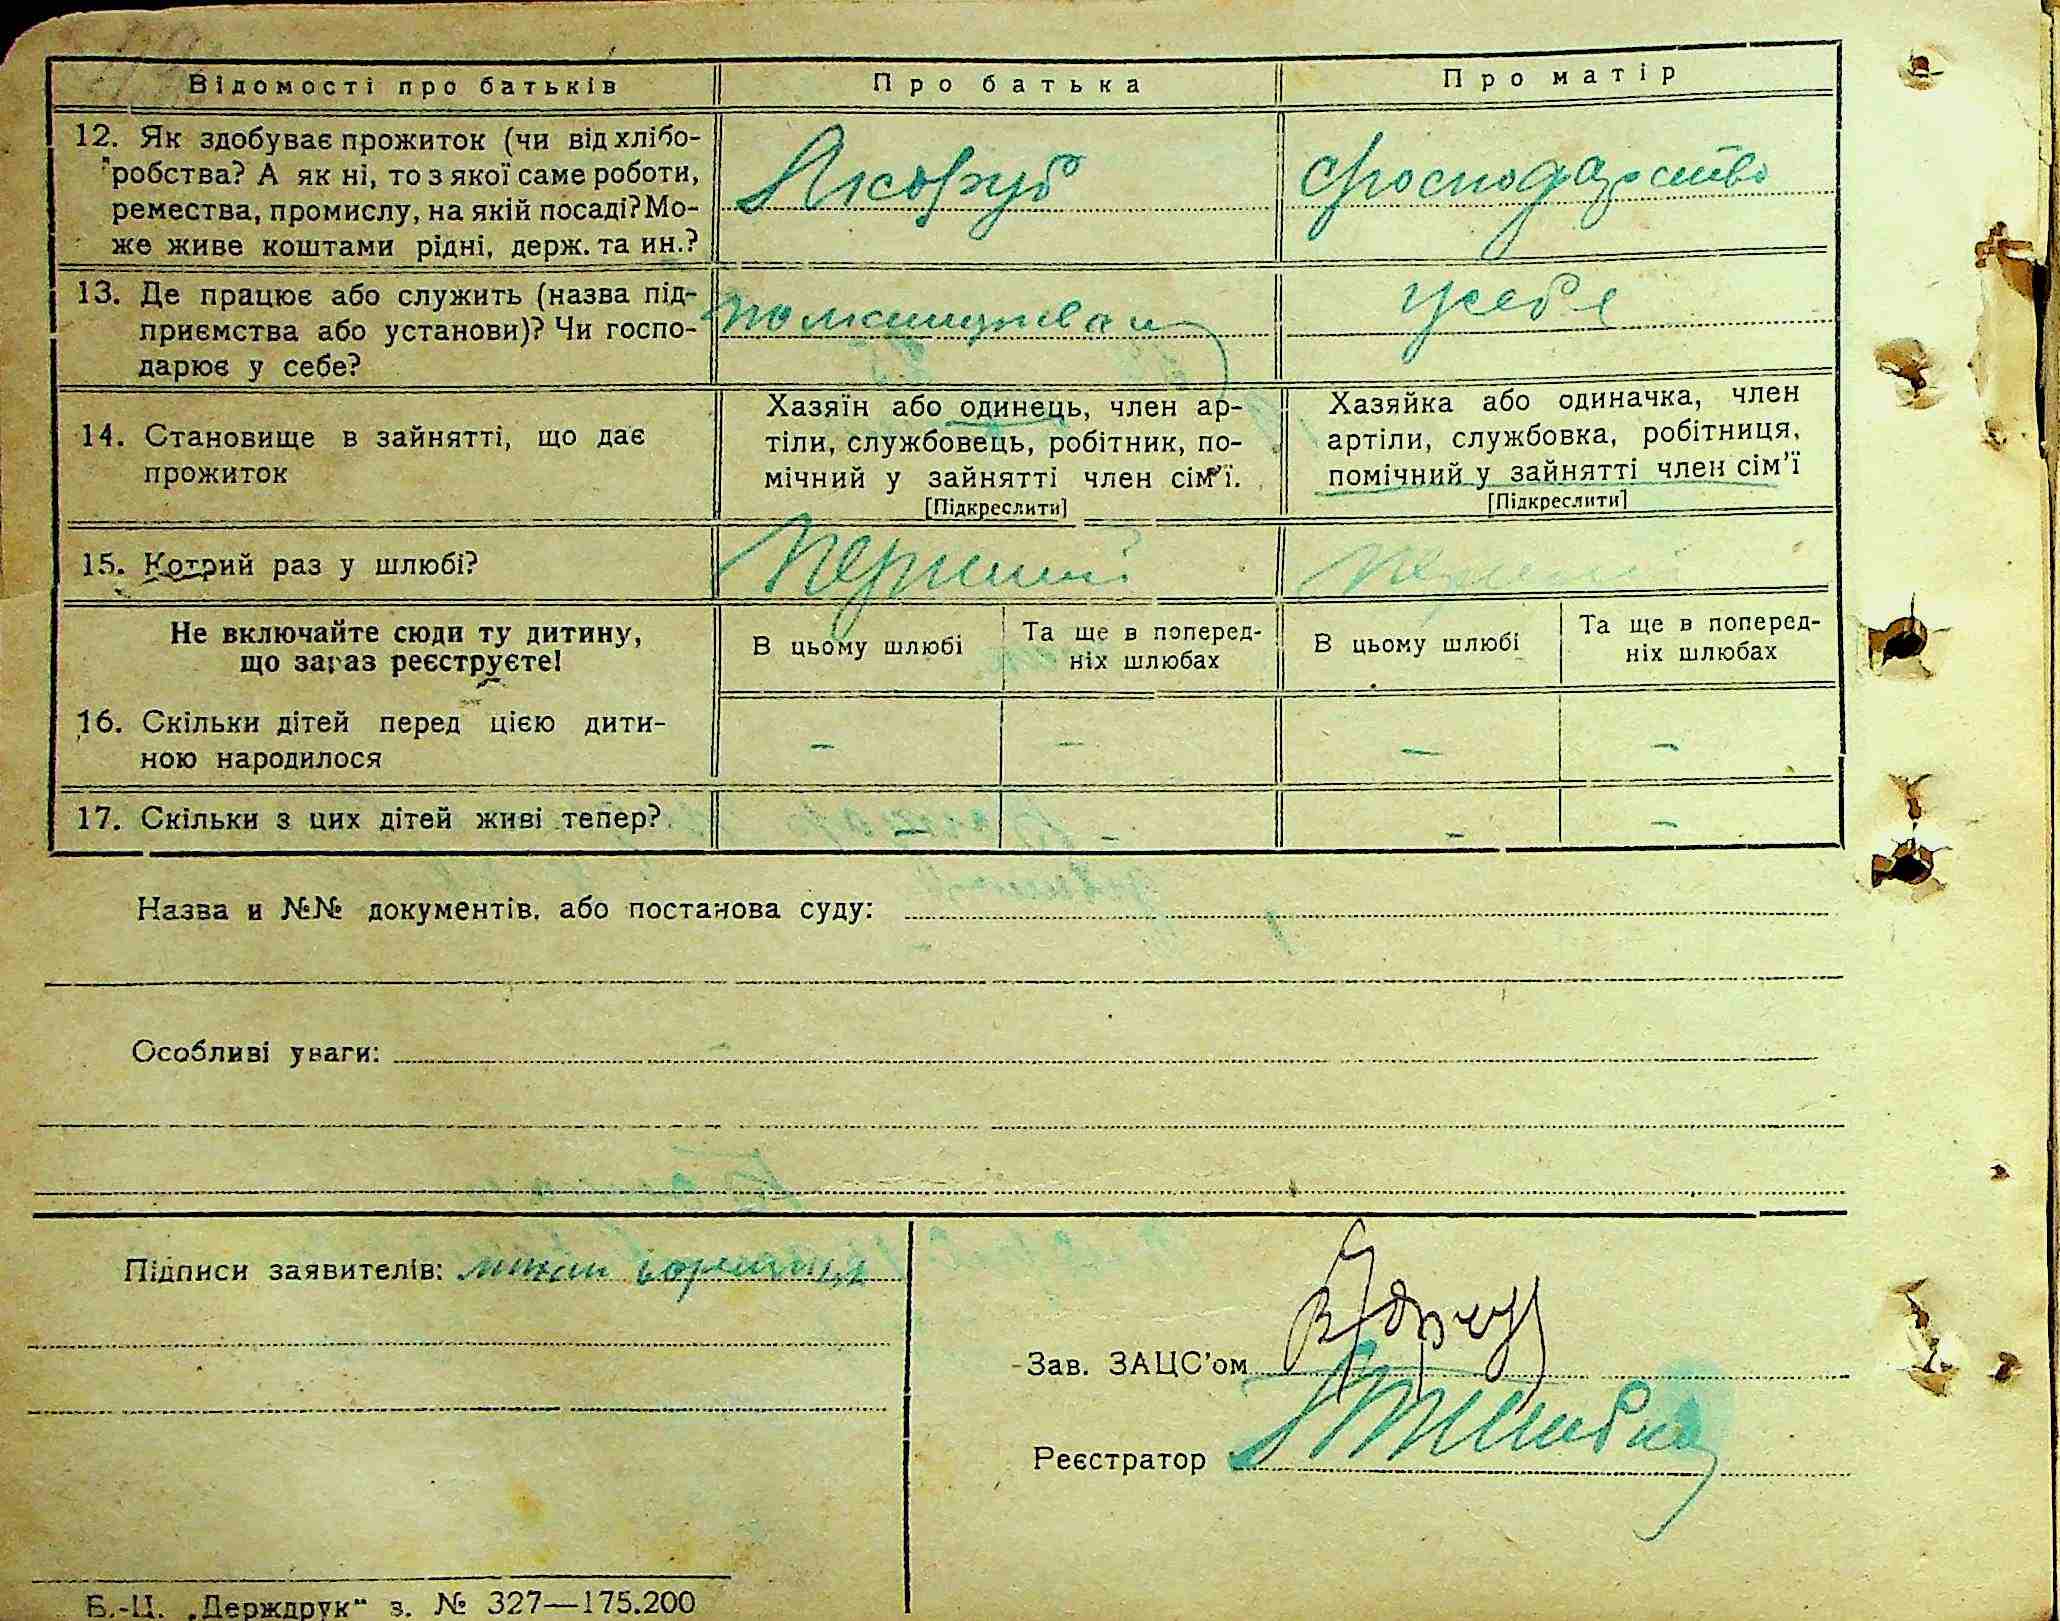 Відомості про батьків
Про батька
Про матір
12. Як здобуває прожиток (чи від хлібо-
робства? А як ні, то з якої саме роботи,
ремества, промислу, на якій посаді? Мо-
же живе коштами рідні, держ. та ин.?
господарство
13. Де працює або служить (назва під-
приємства або установи)? Чи госпо-
дарює у себе?
у себе
14. Становище в зайнятті, що дає
прожиток
Хазяїн або одинець, член ар-
тіли, службовець, робітник, по-
мічний у зайнятті член сім'ї.
[Підкреслити]
Хазяйка або одиначка, член
артіли, службовка, робітниця,
помічний у зайнятті член сім'ї
[Підкреслити]
15. Котрий раз у шлюбі?
Перший
Перший
Не включайте сюди ту дитину,
що зараз реєструєте!
В цьому шлюбі
Та ще в поперед-
ніх шлюбах
В цьому шлюбі
Та ще в поперед-
ніх шлюбах
16. Скільки дітей перед цією дити-
ною народилося
– – – –
17. Скільки з цих дітей живі тепер?
– – –
Назва и №№ документів, або постанова суду:
Особливі уваги:
Підписи заявителів:
Зав. ЗАЦС'ом
Реєстратор
Б.-Ц. „Держдрук“ з. № 327—175.200